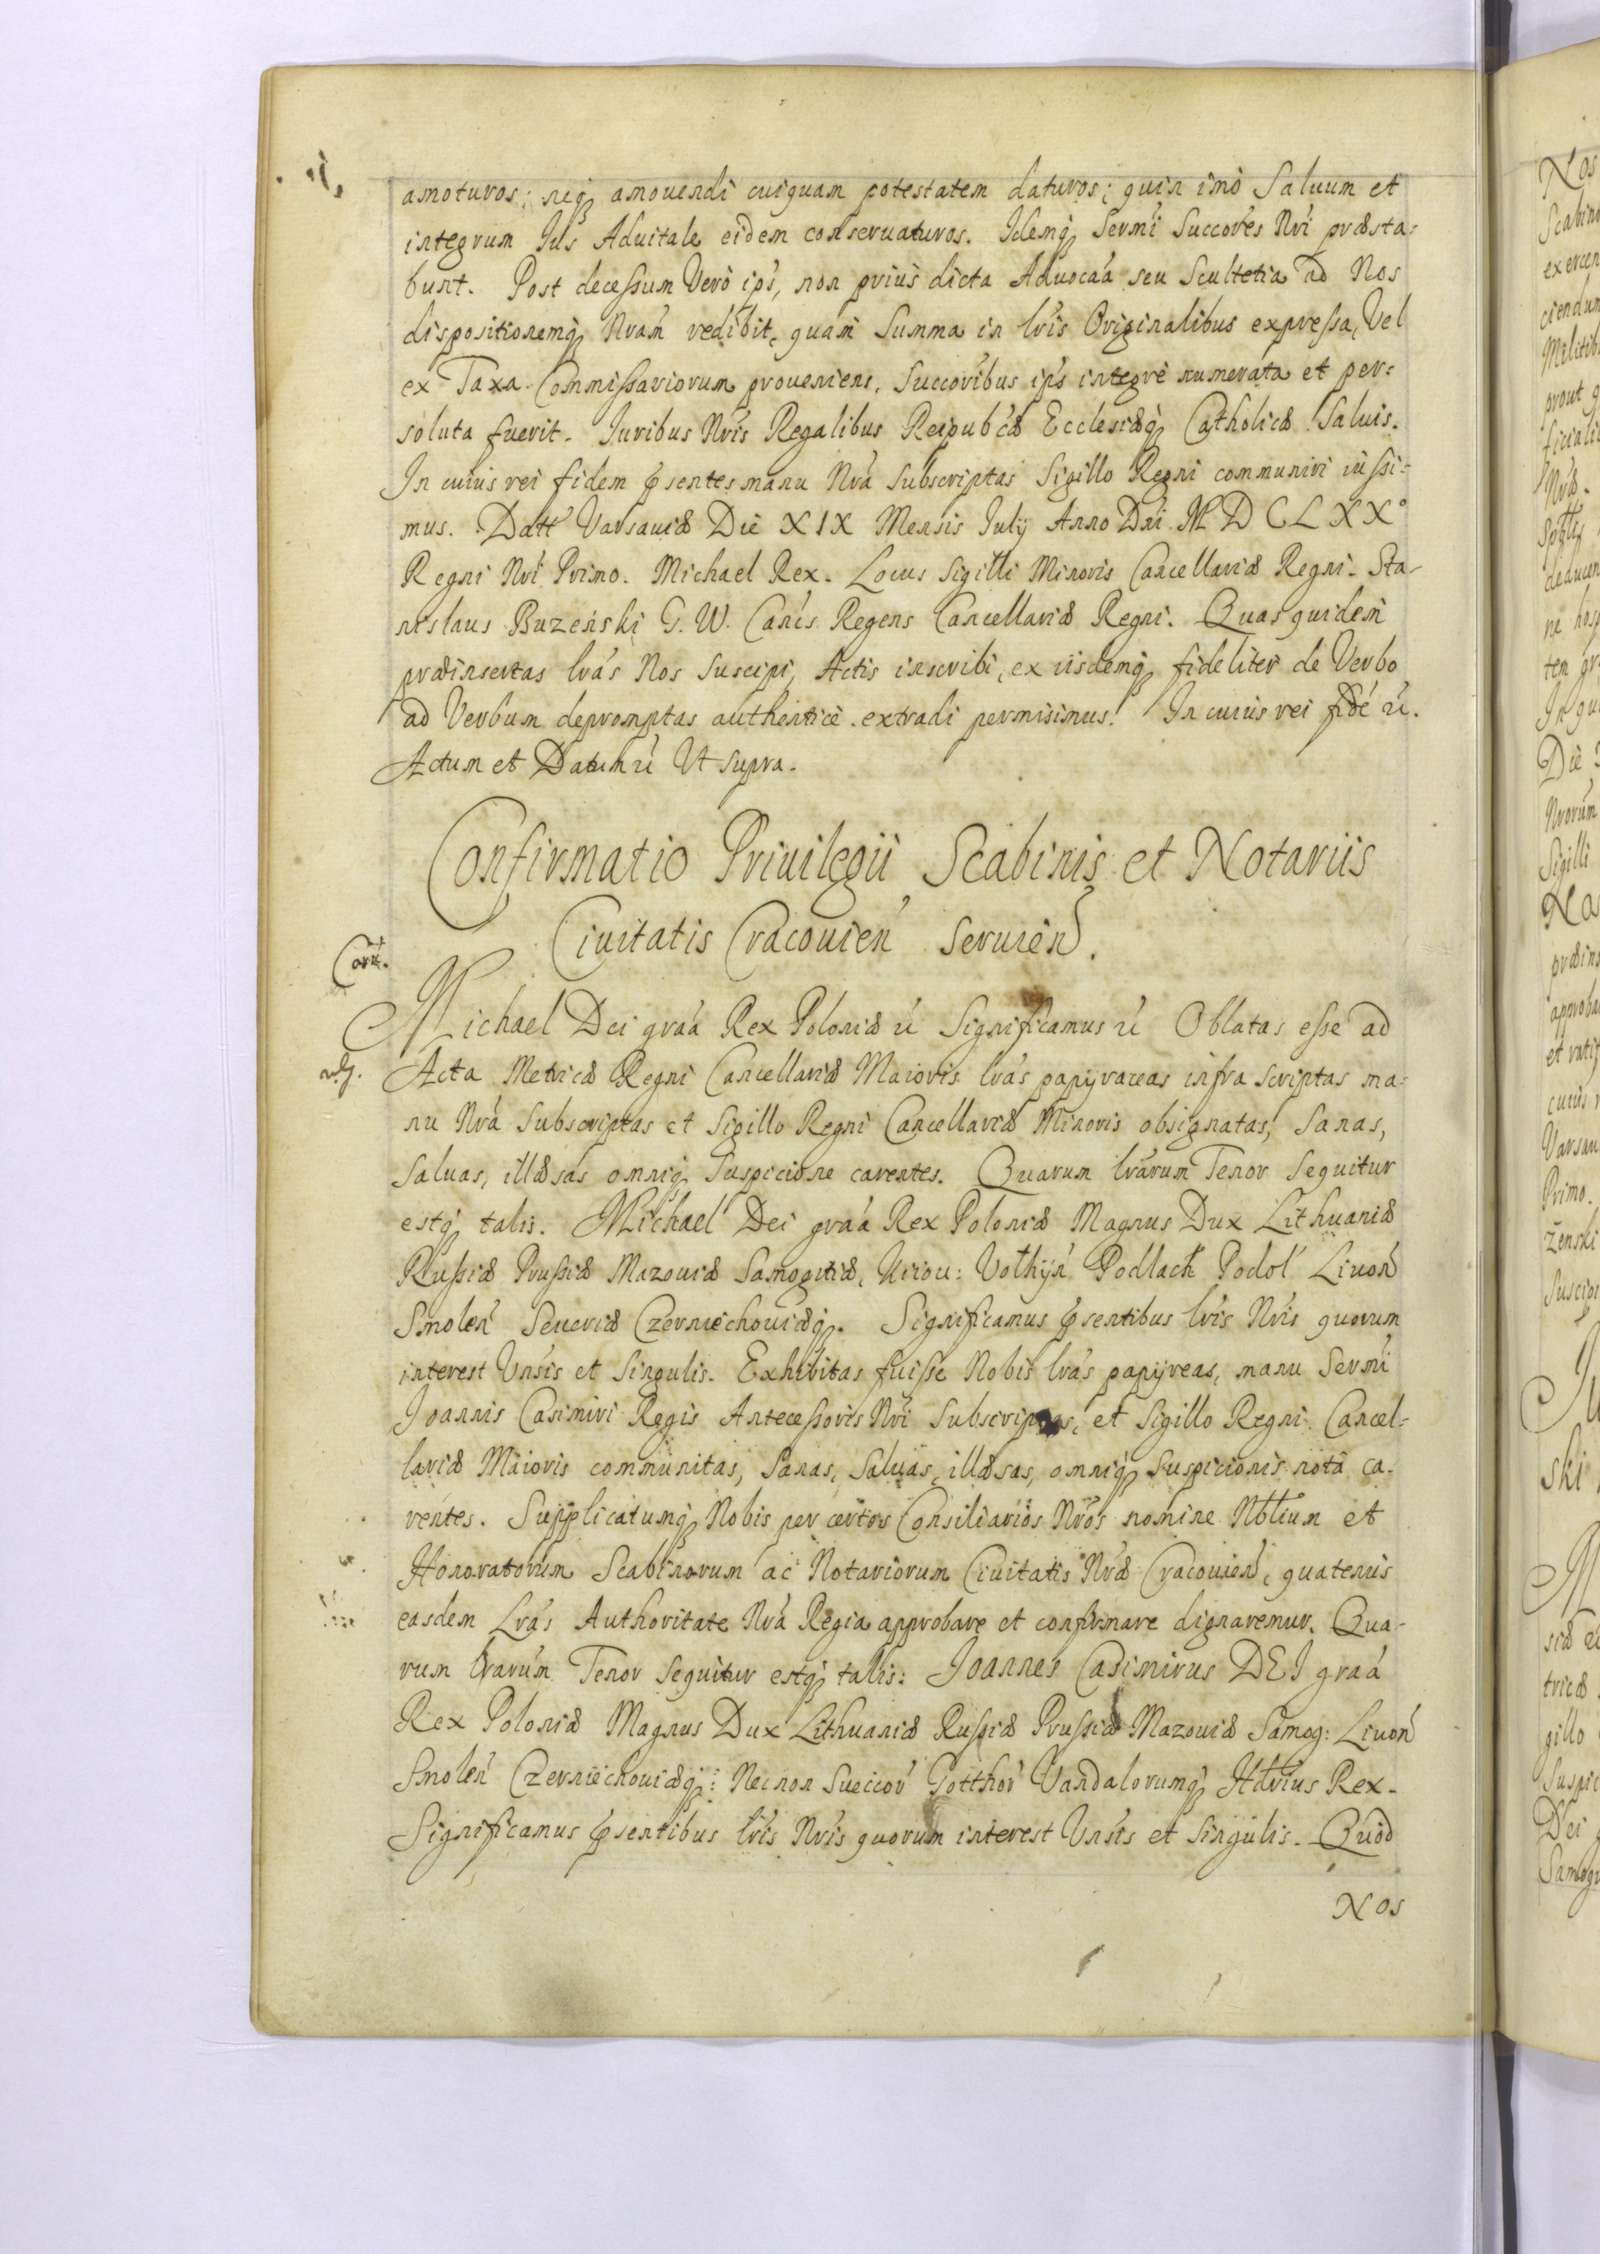 amoturos; neq₃ amouendi cuiquam potestatem daturos; quin imò Saluum et
integrum Ius Aduitale eidem conseruaturos. Idemq₃ Sermi Succores Nri præsta-
bunt. Post decessum Verò ips, non prius dicta Aduocaa seu Scultetia ad Nos
dispositionemq₃ Nram redibit, quam Summa in lris Originalibus expressa, Vel
ex Taxa Commissariorum proueniens, Succoribus ips integrè numerata et per=
soluta fuerit. Iuribus Nris Regalibus Reipubcæ Ecclesiæq₃ Catholicæ Saluis.
In cuius rei fidem pñsentes manu Nra Subscriptas Sigillo Regni communiri iussi=
mus. Datt Varsauiæ Die XIX Mensis Iulij Anno Dni MDCLXX°
Regni Nri Primo. Michael Rex. Locus Sigilli Minoris Cancellariæ Regni. Sta-
nislaus Buzeński G. W. Cancs Regens Cancellariæ Regni. Quas quidem
præinsertas lras Nos Suscipi, Actis inscribi, ex iisdemq₃ fideliter de Verbo
ad Verbum depromptas authenticè extradi permisimus. In cuius rei fidé rć.
Actum et Datum rć Ut supra.
Confirmatio Priuilegii Scabinis et Notariis
Ciuitatis Cracouien seruien.
Michael Dei graa Rex Poloniæ rć Significamus rć Oblatas esse ad
Acta Metricæ Regni Cancellariæ Maioris lras papyraceas infra scriptas ma-
nu Nra Subscriptas et Sigillo Regni Cancellariæ Minoris obsignatas, Sanas,
Saluas, illæsas omniq₃ Suspicione carentes. Quarum lrarum Tenor Sequitur
estq₃ talis. Michael Dei graa Rex Poloniæ Magnus Dux Lithuaniæ
Russiæ Prussiæ Mazouiæ Samogitiæ, Kiiou: Volhyn Podlach Podol Liuon
Smolen Seueriæ Czerniechouiæq₃. Significamus pñsentibus lris Nris quorum
interest Unsis et Singulis. Exhibitas fuisse Nobis lras papyreas, manu Sermi
Ioannis Casimiri Regis Antecessoris Nri Subscriptas, et Sigillo Regni Cancel=
lariæ Maioris communitas, Sanas, Saluas, illæsas, omniq₃ Suspicionis nota ca-
rentes. Supplicatumq₃ Nobis per certos Consiliarios Nros nomine Nblium et
Honoratorum Scabinorum ac Notariorum Ciuitatis Nræ Cracouien, quatenus
easdem Lras Authoritate Nra Regia approbare et confirmare dignaremur. Qua-
rum lrarum Tenor sequitur estq₃ talis: Ioannes Casimirus DEI graa
Rex Poloniæ Magnus Dux Lithuaniæ Russiæ Prussiæ Mazouiæ Samog: Liuon
Smolen Czerniechouiæq₃: Necnon Suecor Gotthor Vandalorumq₃ Hdrius Rex.
Significamus pñsentibus lris Nris quorum interest Unsis et Singulis. Quod
Nos